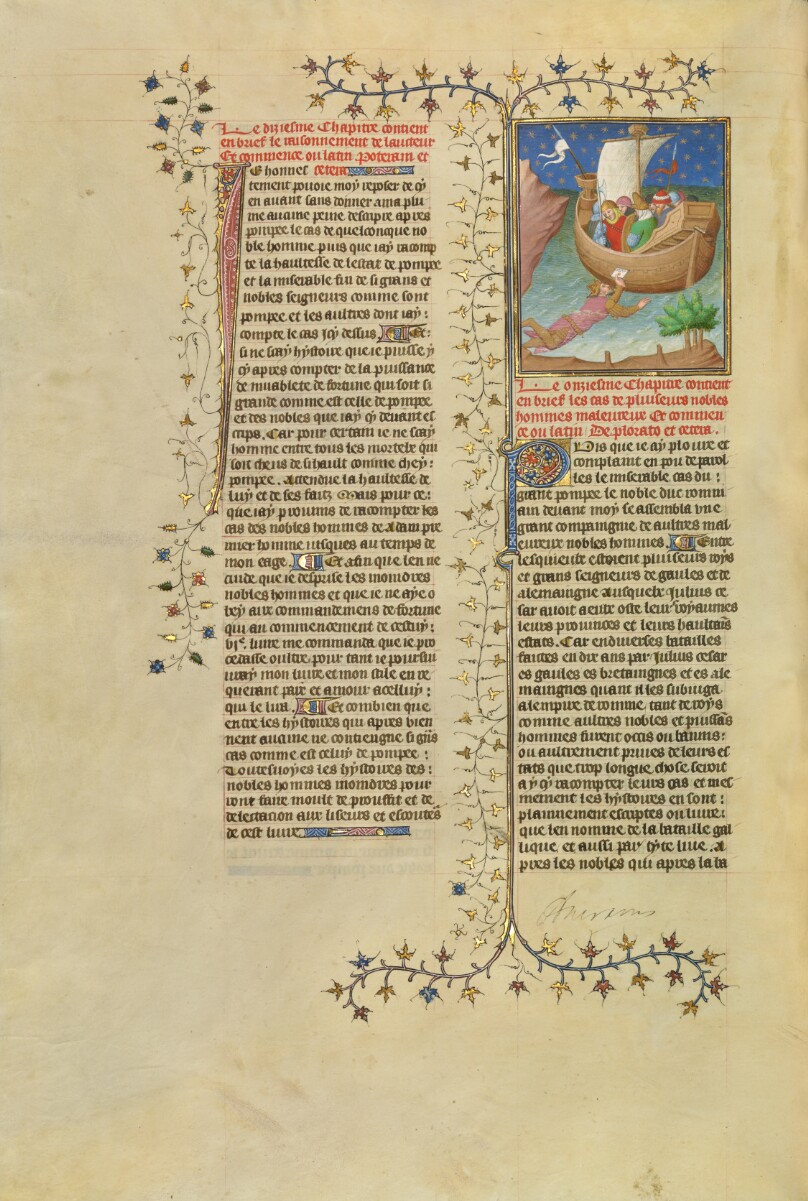 Le diziesme Chapitre contient
en brief le raisonnement de lauteur
Et commence ou latin. Poteram et
Ie honnes cetera
tement pouoie moy reposer de cy
en auant sans donner a ma plu
me aucune peine descripre apres
pompee le cas de quelconque no
ble homme puis que iay racomp
te la haultesse de lestat de pompee
et la miserable fin de si grans et
nobles seigneurs comme sont
pompee et les aultres dont iay:
compte le cas icy dessus. Et:
si ne scay hystoire que ie puisse y
cy apres compter de la puissance
de muablete de fortune qui soit si
grande comme est celle de pompee
et des nobles que iay cy deuant es
crips. Car pour certain ie ne scay
homme entre tous les mortelz qui
soit cheus de si hault comme chey:
pompee. Attendue la haultesse de
luy et de ses faitz Mais pour ce:
que iay promis de racompter les
cas des nobles hommes de Adam pre
mier homme iusques au temps de
mon eage. Et afin que len ne
cuide que ie desprise les moindres
nobles hommes et que ie ne aye o
bey aux commandemens de fortune
qui au commencement de cestuy:
vie. liure me commanda que ie pro
cedasse oultre. pour tant ie poursui
uray mon liure et mon stile en re
querant paix et amour a celluy:
qui le lira. Et combien que
entre les hystoires qui apres vien
nent aucune ne contiengne si gñs
cas comme est celuy de pompee:
Toutesuoyes les hystoires des:
nobles hommes moindres pour
ront faire moult de prouffit et de
delectation aux liseurs et escoutēs
de cest liure
Le onziesme Chapitre contient
en brief les cas de pluiseurs nobles
hommes maleureux Et commen
ce ou latin De plorato et cetera.
Puis que ie ay ploure et
complaint en pou de parol
les le miserable cas du:
grant pompee le noble duc romm
ain deuant moy se assembla vne
grant compaignie de aultres mal
eureux nobles hommes. Entre
lesquieulx estoient pluiseurs roys
et grans seigneurs de gaules et de
alemaingne ausquelx Julius ce
sar auoit a eulx oste leurs royaumes
leurs prouinces et leurs haultains
estats. Car en diuerses batailles
faictes en dix ans par Julius cesar
es gaules es bretaingnes et es ale
maingnes quant il les subiuga
a lempire de romme. tant de roys
comme aultres nobles et puissās
hommes furent occis ou banis:
ou aultrement priues de leurs es
tats que trop longue chose seroit
a y cy racompter leurs cas et mes
mement les hystoires en sont:
plainnement escriptes ou liure:
que len nomme de la bataille gal
lique. et aussi par tyte liue. A
pres les nobles qui apres la ba